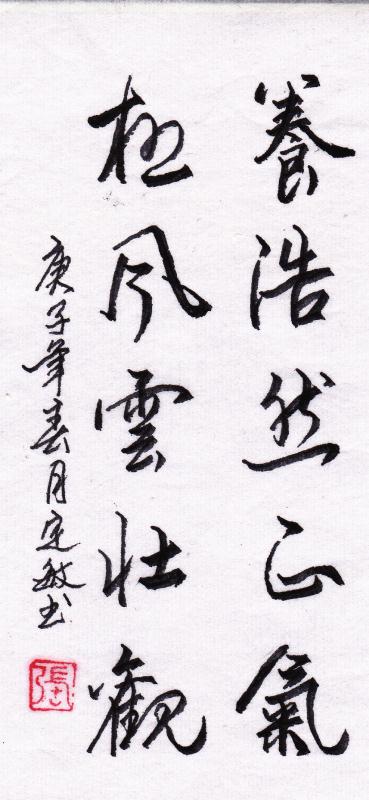 養浩然正氣
極風雲壯觀
庚子年春月定敏书
張